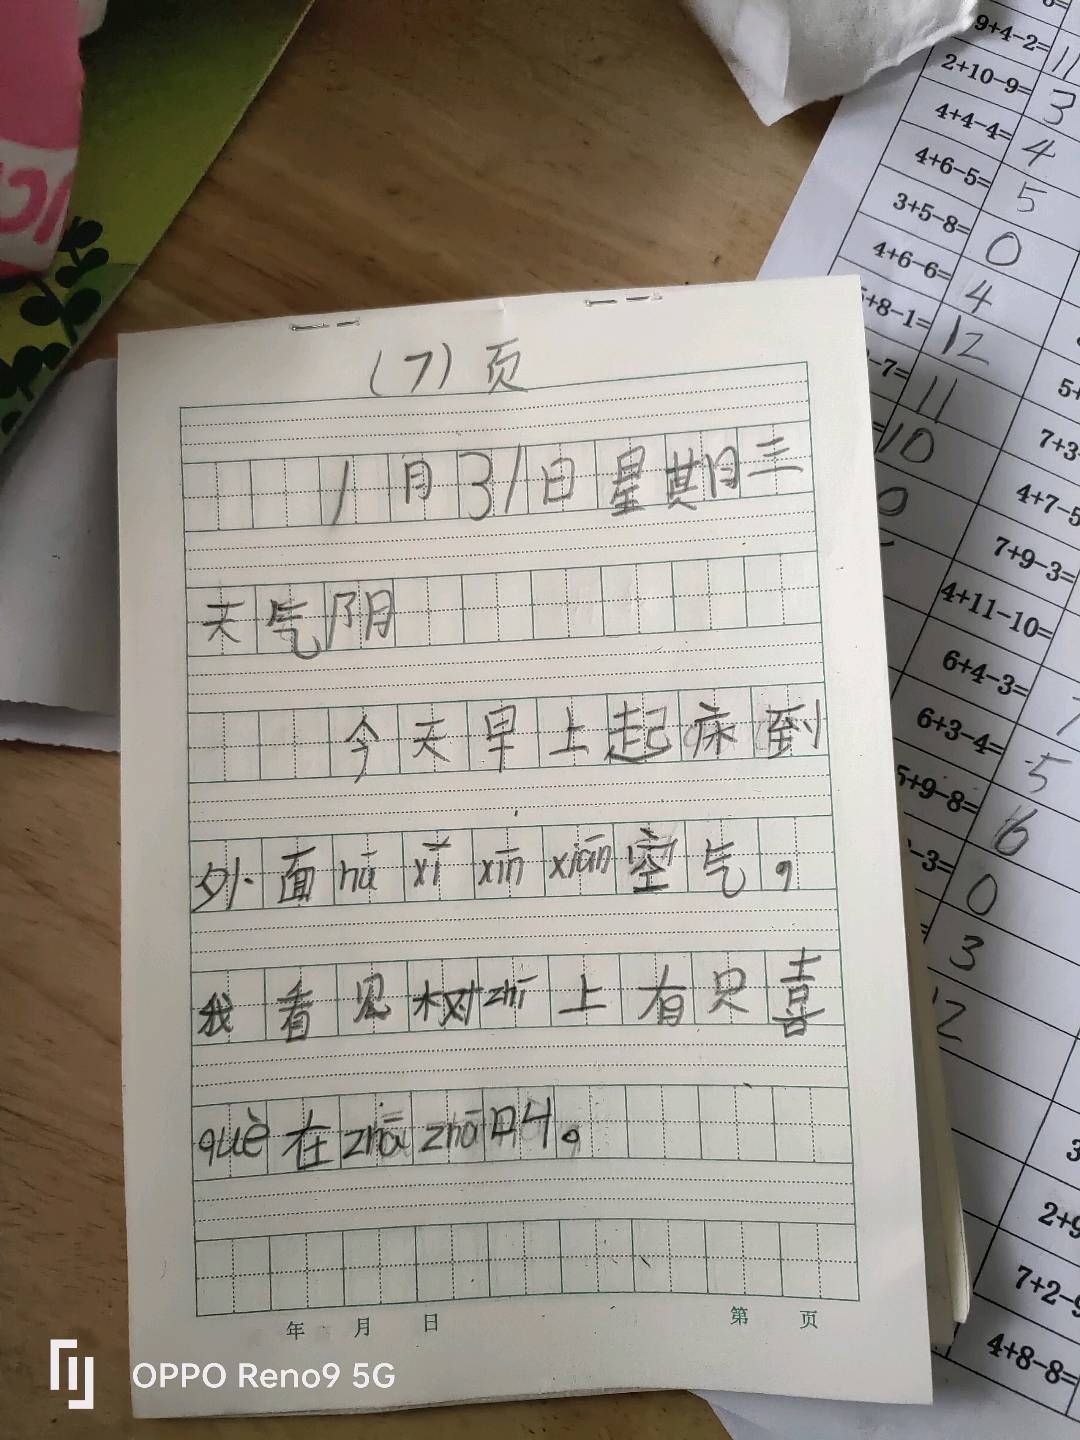 (7)页
1月31日星期三
天气阴
今天早上起床到
外面hū xī xīn xiān空气，
我看见树zhī上有只喜
què在zhā zhā叫。
年 月 日 第 页
OPPO Reno9 5G
9+4-2= 11
2+10-9= 3
4+4-4= 4
4+6-5= 5
3+5-8= 0
4+6-6= 4
+8-1= 12
-7= 11
= 10
5+
7+3-
4+7-5
7+9-3=
4+11-10=
6+4-3= 7
6+3-4= 5
5+9-8= 6
-3= 0
= 3
12
2+9
7+2-9
4+8-8=